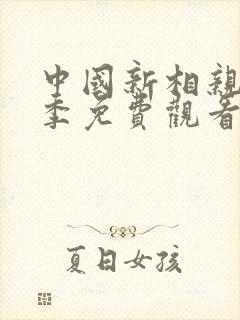 中國新相親
季免費觀看
夏日女孩